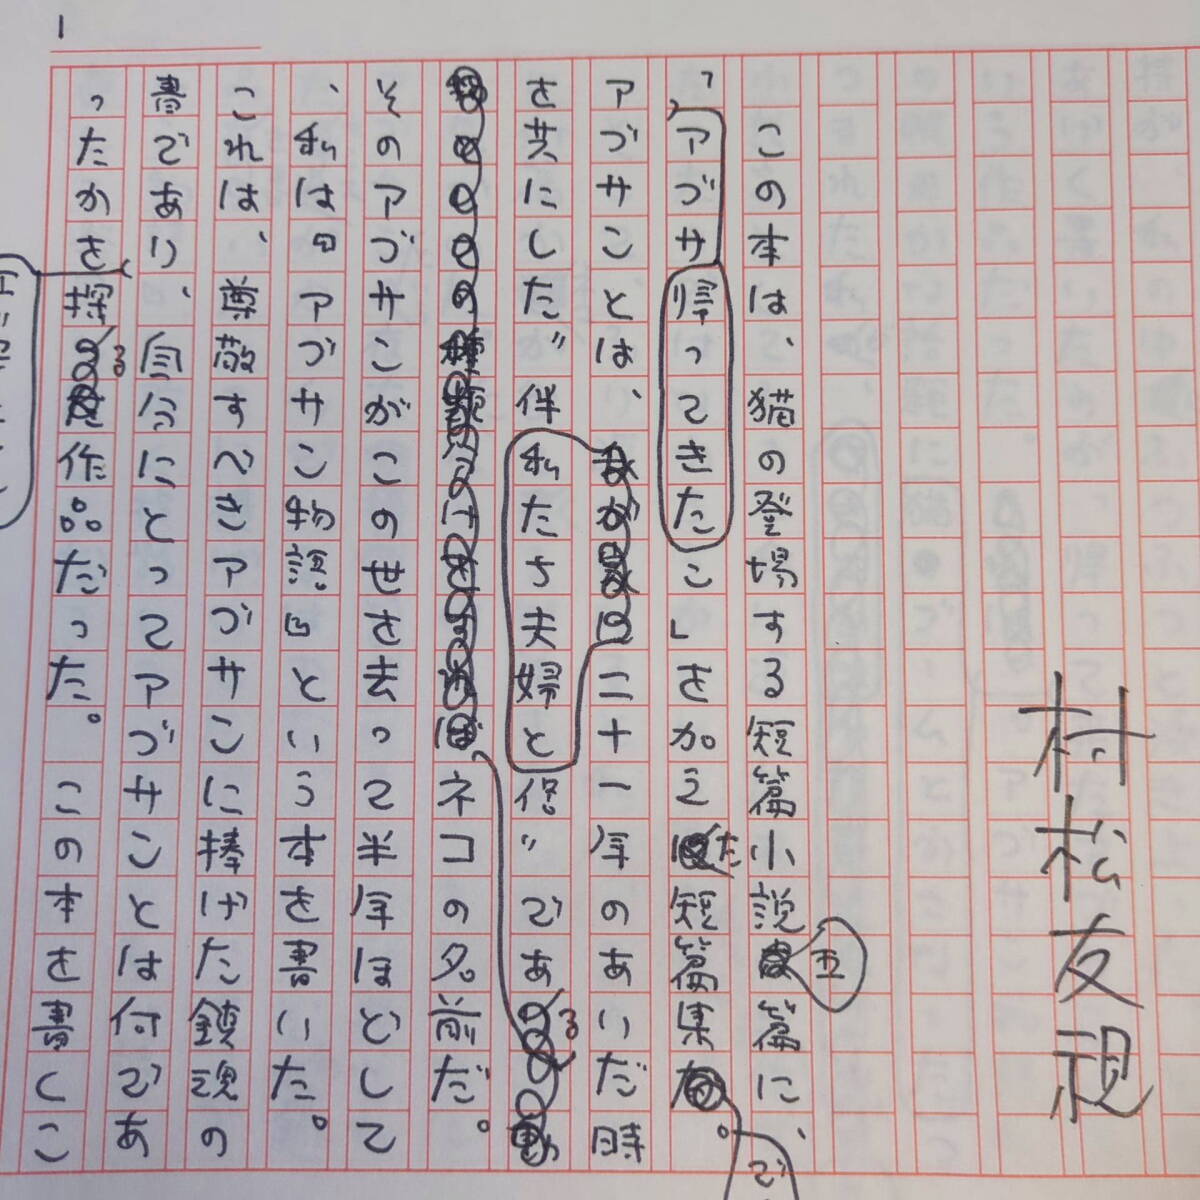 村松友視
この本は、猫の登場する短篇小説五篇に、
「アヅサ帰ってきたこ」を加えた短篇集
アヅサことは、二十一年のあいだ時
を共にした〝伴私たち夫婦と侶〟である
ネコの名前だ。
そのアヅサこがこの世を去って半年ほどして
、私は『アヅサこ物語』という本を書いた。
これは、尊敬すべきアヅサこに捧げた鎮魂の
書であり、自分にとってアヅサことは何であ
ったかを探る作品だった。 この本を書くこ
1